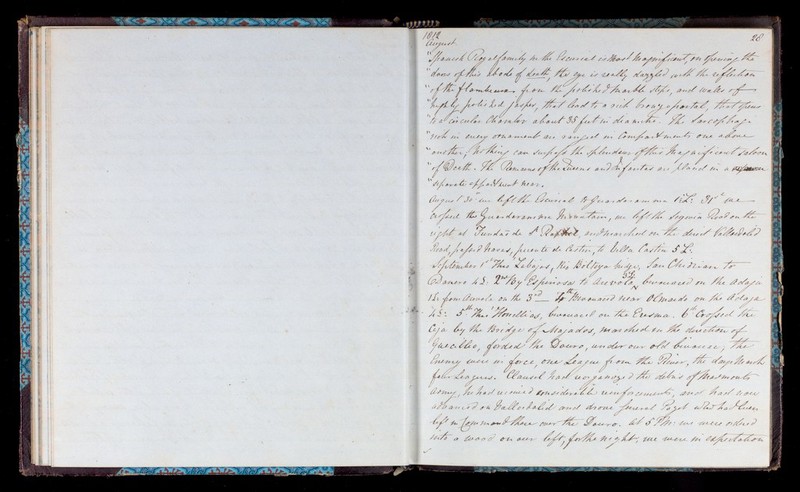 1812 28
August
"Spanish Royal family in the Escurial is most magnificent, on opening the
"doors of this abode of death, the eye is really dazzled with the reflection
"of the flambeaux from the polished marble steps, and walls of
"highly polished jasper, that lead to a rich bronze portal, that opens
"to a circular chamber about 35 feet in diameter. The Sarcophagi
"rich in every ornament are ranged in Compartments one above
"another, nothing can surpass the splendour of this magnificent saloon
"of Death. The Remains of the Queens and Infantas are placed in a
"seperate appartment near.
August 30 we left the Escurial to Guardaramma 2L: 31st we
crossed the Guardaramma Mountain, we left the Segovia Road on the
right at Funda de St Rafael, and marched on the direct Valladolid
Road, passed Navas, puente de Castin, to Villa Castin 5L.
September 1st Thro' Labajos, the Boltoya bridge, San Chidrian to
Adanero 4L: 2nd By Espinosa to Arevolo 3L bivouaced on the Adaja
1L from Arevolo on the 3rd — 4th Bivouaced near Olmedo on the Adaja
4L: 5th Thro' Hornillias, bivouaced on the Eresma. 6th Crossed the
Ceja by the Bridge of Mojados, marched in the direction of
forded the Douro, under our old bivouac, the
Enemy were in force one League from the River, the days March
four Leagues. Clausel had reorganized the debris of Marmonts
Army, he had received considerable reinforcements, and had now
advanced on Valladolid and drove General Paget who had been
left in Command there over the Douro. at 5 PM: we were ordered
into a wood on our left, for the night. we were in expectation